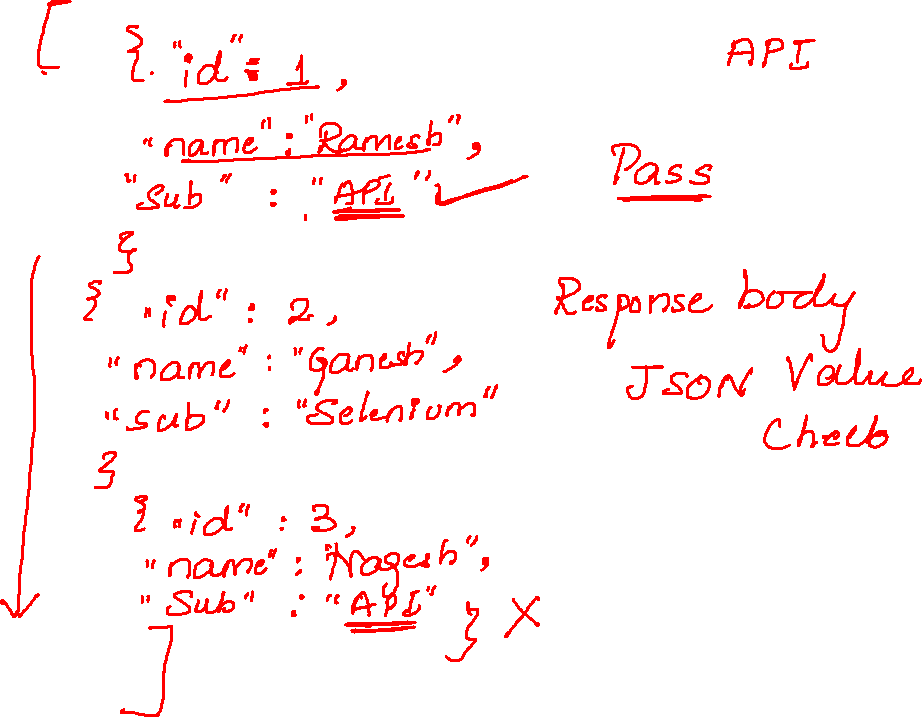 [ { "id" : 1 ,
"name" : "Ramesh" ,
"Sub" : "API"
}
{ "id" : 2 ,
"name" : "Ganesh" ,
"sub" : "Selenium"
}
{ "id" : 3 ,
"name" : "Nagesh" ,
"Sub" : "API" } X
]
API
Pass
Response body
JSON Value
Check